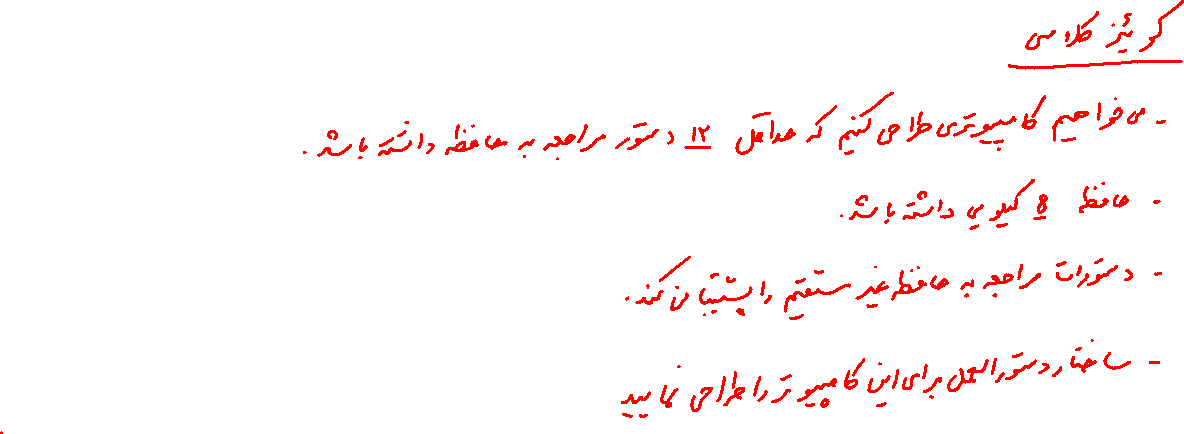 کوئیز کلاسی
- می خواهیم کامپیوتری طراحی کنیم که حداقل ۱۲ دستور مراجعه به حافظه داشته باشد.
- حافظه 8 کیلویی داشته باشد.
- دستورات مراجعه به حافظه غیر مستقیم را پشتیبانی کند.
- ساختار دستورالعمل برای این کامپیوتر را طراحی نمایید